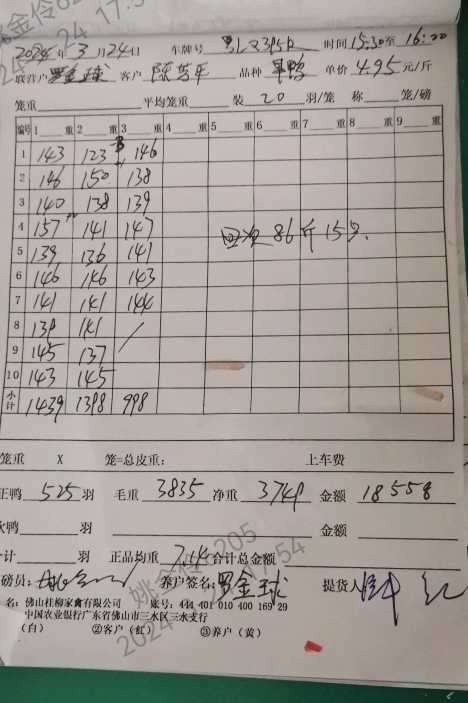 2024年3月24日 车牌号 时间15:30至16:20
联营户罗金球 客户 陈 平 品种 单价4.95元/斤
笼重 平均笼重 装20羽/笼 称 笼/磅
编号 1 重 2 重 3 重 4 重 5 重 6 重 7 重 8 重 9 重
1 143 123 146
2 146 150 138
3 140 138 139
4 157 141 147
5 139 136 141 回 86斤 15只.
6 146 146 143
7 141 141 144
8 139 141 /
9 145 137
10 143 145
小计 1439 1398 998
笼重 X 笼=总皮重: 上车费
正鸭 525 羽 毛重 3835 净重 3749 金额 18558
次鸭 羽 金额
计 羽 正品均重 7.14 合计总金额
磅员: 养户签名: 罗金球 提货人
名: 佛山桂柳家禽有限公司 账号: 444 401 010 400 169 29
中国农业银行广东省佛山市三水区三水支行
(白) ②客户(红) ③养户(黄)